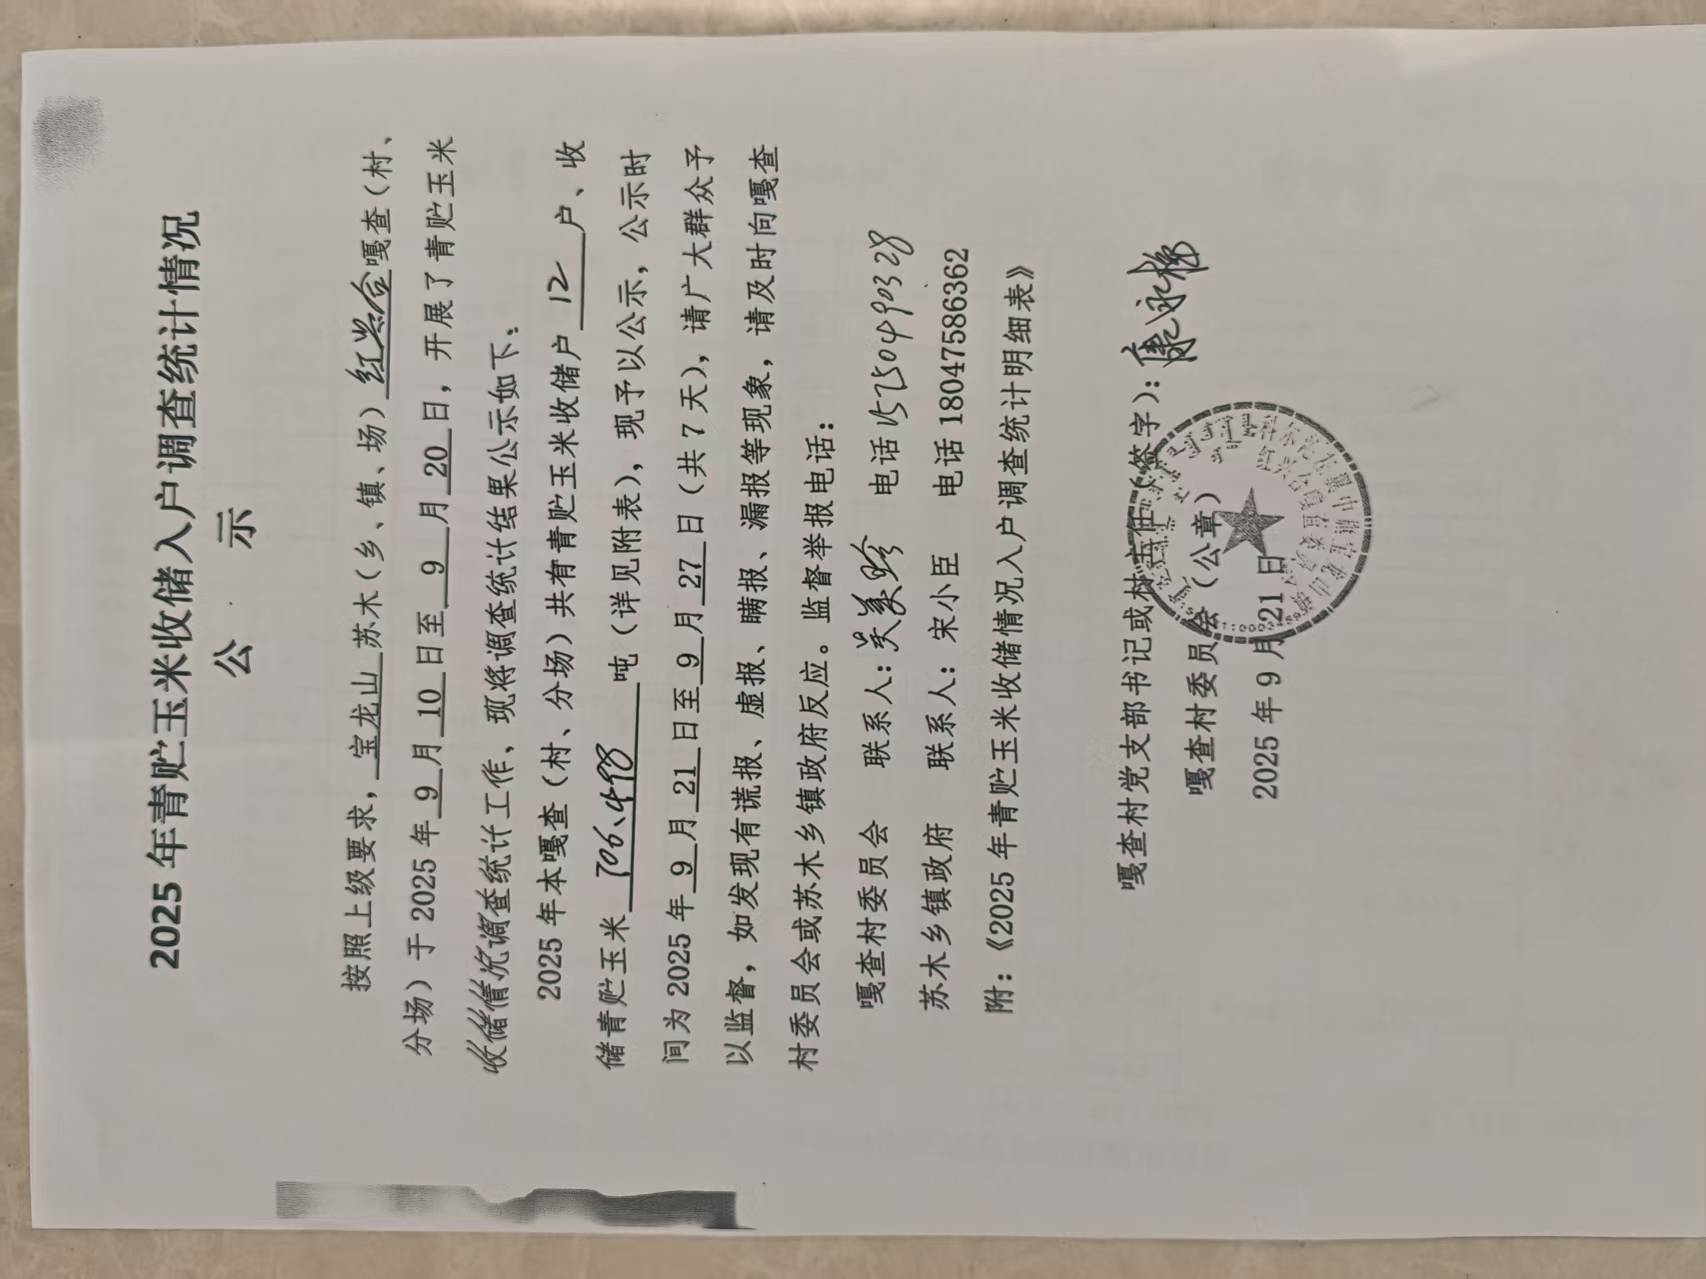 2025年青贮玉米收储入户调查统计情况
公 示
按照上级要求，宝龙山苏木（乡、镇、场）红兴合嘎查（村、
分场）于2025年9月10日至9月20日，开展了青贮玉米
收储情况调查统计工作，现将调查统计结果公示如下：
2025年本嘎查（村、分场）共有青贮玉米收储户12户、收
储青贮玉米706、498吨（详见附表），现予以公示，公示时
间为2025年9月21日至9月27日（共7天），请广大群众予
以监督，如发现有谎报、虚报、瞒报、漏报等现象，请及时向嘎查
村委员会或苏木乡镇政府反应。监督举报电话：
嘎查村委员会 联系人：吴美玲 电话15750490328
苏木乡镇政府 联系人：宋小臣 电话18047586362
附：《2025年青贮玉米收储情况入户调查统计明细表》
嘎查村党支部书记或村主任（签字）：康永梅
嘎查村委员会（公章）
2025年9月21日